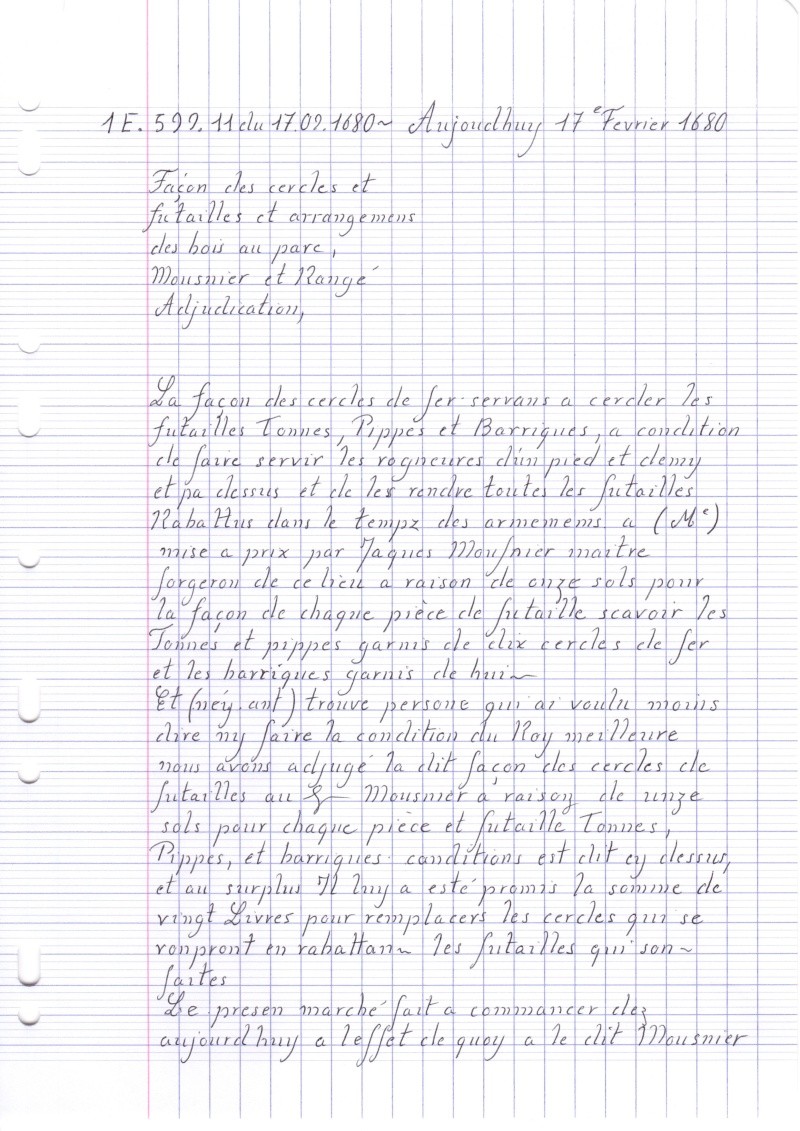 1E. 599. 11 du 17.02.1680~ Aujoudhuy 17e Fevrier 1680
Façon des cercles et
futailles et arrangemens
des bois au parc,
Mousnier et Rangé
Adjudication,
La façon des cercles de fer servans a cercler les
futailles Tonnes, Pippes et Barriques, a condition
de faire servir les rogneures d'un pied et demy
et pa dessus et de les rendre toutes les futailles
Rabattus dans le tempz des armemems a (Me)
mise a prix par Jaques Mousnier maitre
forgeron de ce lieu a raison de onze sols pour
la façon de chaque pièce de futaille scavoir les
Tonnes et pippes garnis de dix cercles de fer
et les barriques garnis de hui~
Et (néy.ant) trouve persone qui ai voulu moins
dire ny faire la condition du Roy meilleure
nous avons adjugé la dit façon des cercles de
futailles au Mousnier à raison de unze
sols pour chaque pièce et futaille Tonnes,
Pippes, et barriques conditions est dit cy dessus,
et au surplus Il luy a esté promis la somme de
vingt Livres pour remplacers les cercles qui se
ronpront en rabattan~ les futailles qui son~
faites
Le presen marché fait a commancer dez
aujourdhuy a leffet de quoy a le dit Mousnier